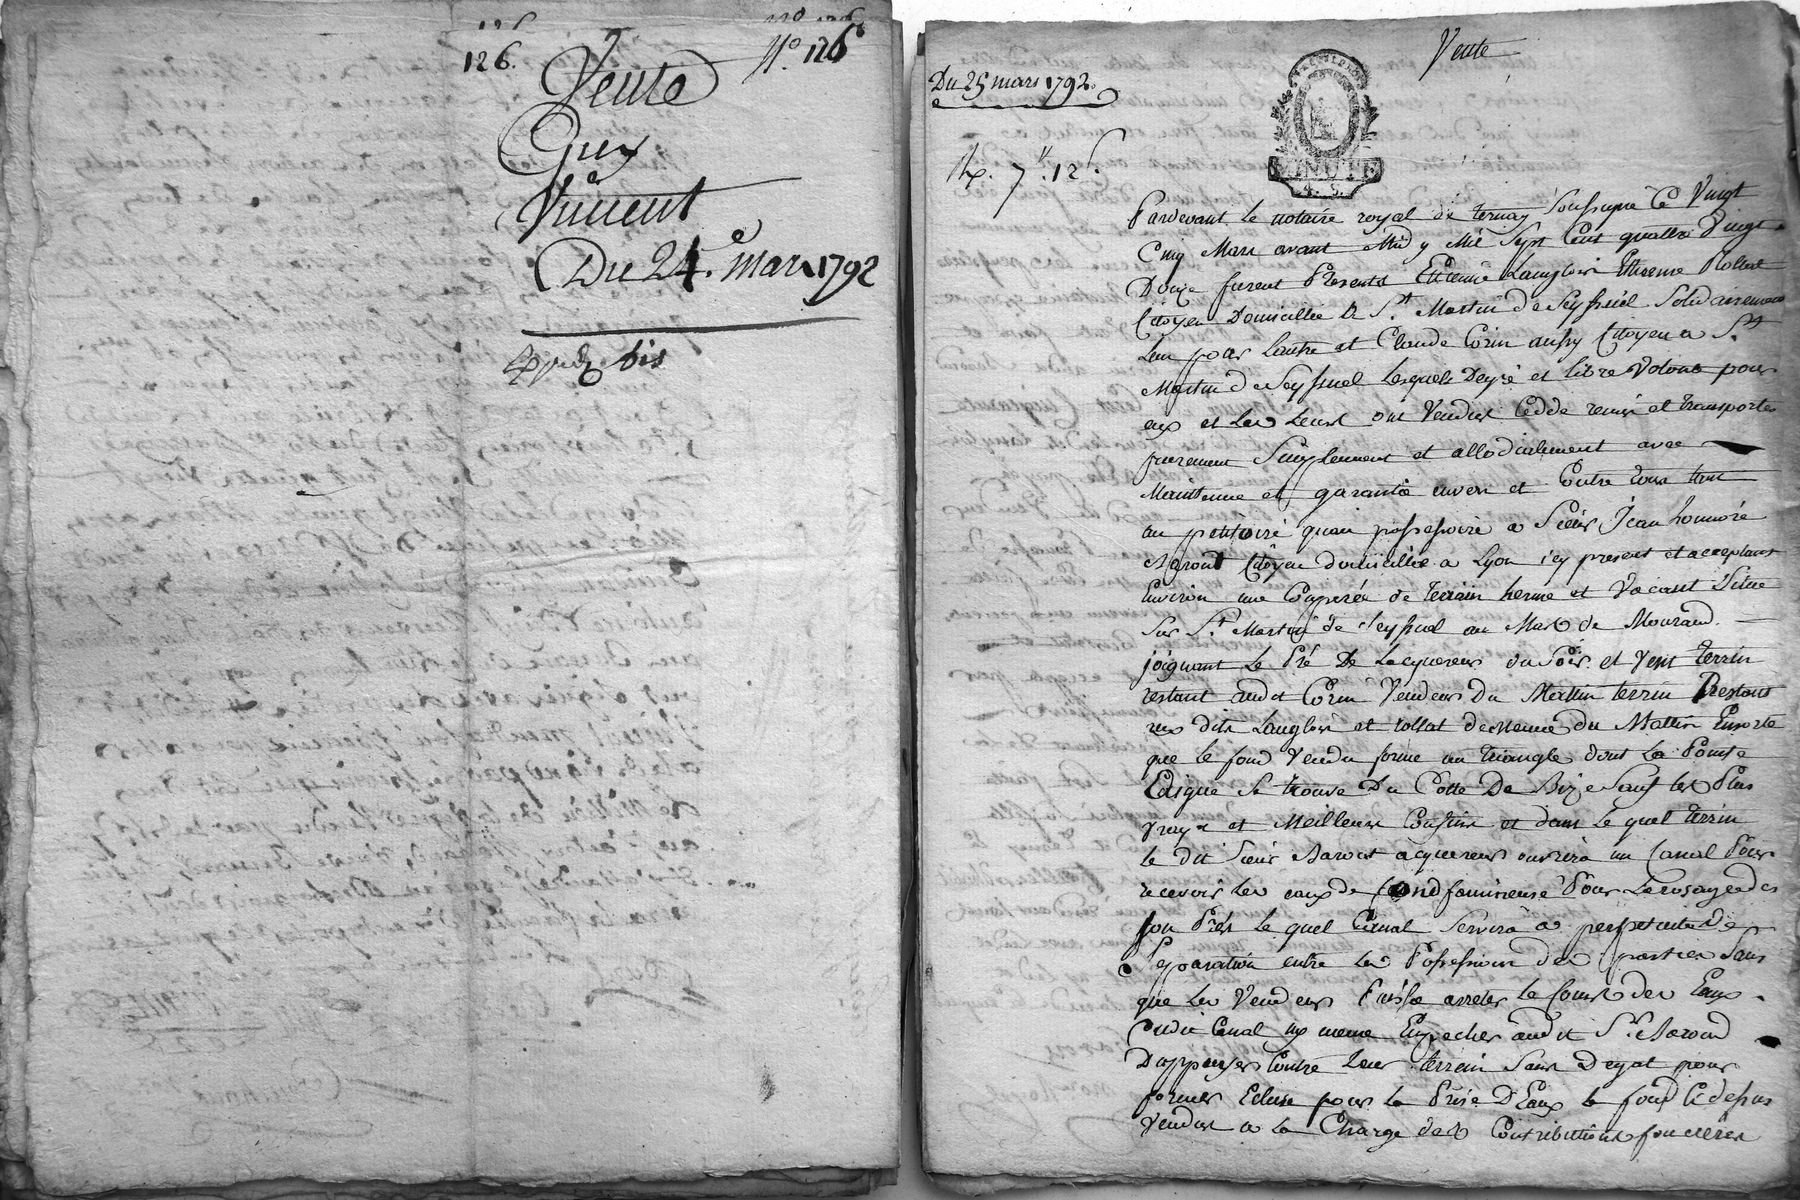 126.
N.° 126
Vente
Guy
Vincent
Du 24.e Mars 1792
bis
Vente
Du 25 mars 1792.
7.tt 12.s
MINUTE
4. S.
Pardevant le notaire royal de ternay soussigné Ce Vingt
Cinq Mars avant Midy Mil Sept Cent quattre Vingt
Douze furent Presents Etienne Langlois Etienne Rollat
Citoyen Domicillié à St Martin de Seyssuel Solidairement
L'un pour L'autre et Claude Corin aussy Citoyen a St
Martin de Seyssuel Lesquels De gré et libre Volonté pour
eux et les Leurs ont Vendus Cedde remis et transportés
purement Simplement et allodialement avec
Maintenue et garantie envers et Contre tous tant
au petitoire quau possessoire a Sieur Jean honnoré
Baront Citoyen domicillié a Lyon icy present et acceptant
Environ une Couperée de terrain herme et Vacant Situé
Sur St Martin de Seyssuel au Mas de Mourand.
joignant le Pré De Lacquereur du Soir et Vent terrin
restant audit Corin Vendeur du Mattin terrin Restant
aux dits Langlois et rollat du Mattin Ensorte
que le fond Vendu forme un triangle dont La Pointe
Eaigue Se trouve Du Cotté De Bize Sauf les Plus
Vrays et Meilleurs Confins et dans Le quel terrin
le dit Sieur Baront acquereur ouvrira un Canal Pour
recevoir Les eaux de Combfamineuse Pour Larrosage de
son Prés Le quel Canal Servira a perpetuité De
Separation entre les Possessions des parties Sans
que les Vendeurs Puisse arreter le Cours des Eaux
dudit Canal ny meme Empecher audit Sr Barond
D'appuyer Contre Leur terrein Sans Degat pour
former Ecluse pour la Prise D'Eaux le fond Cy dessus
Vendus a la Charge des Contributions foncieres